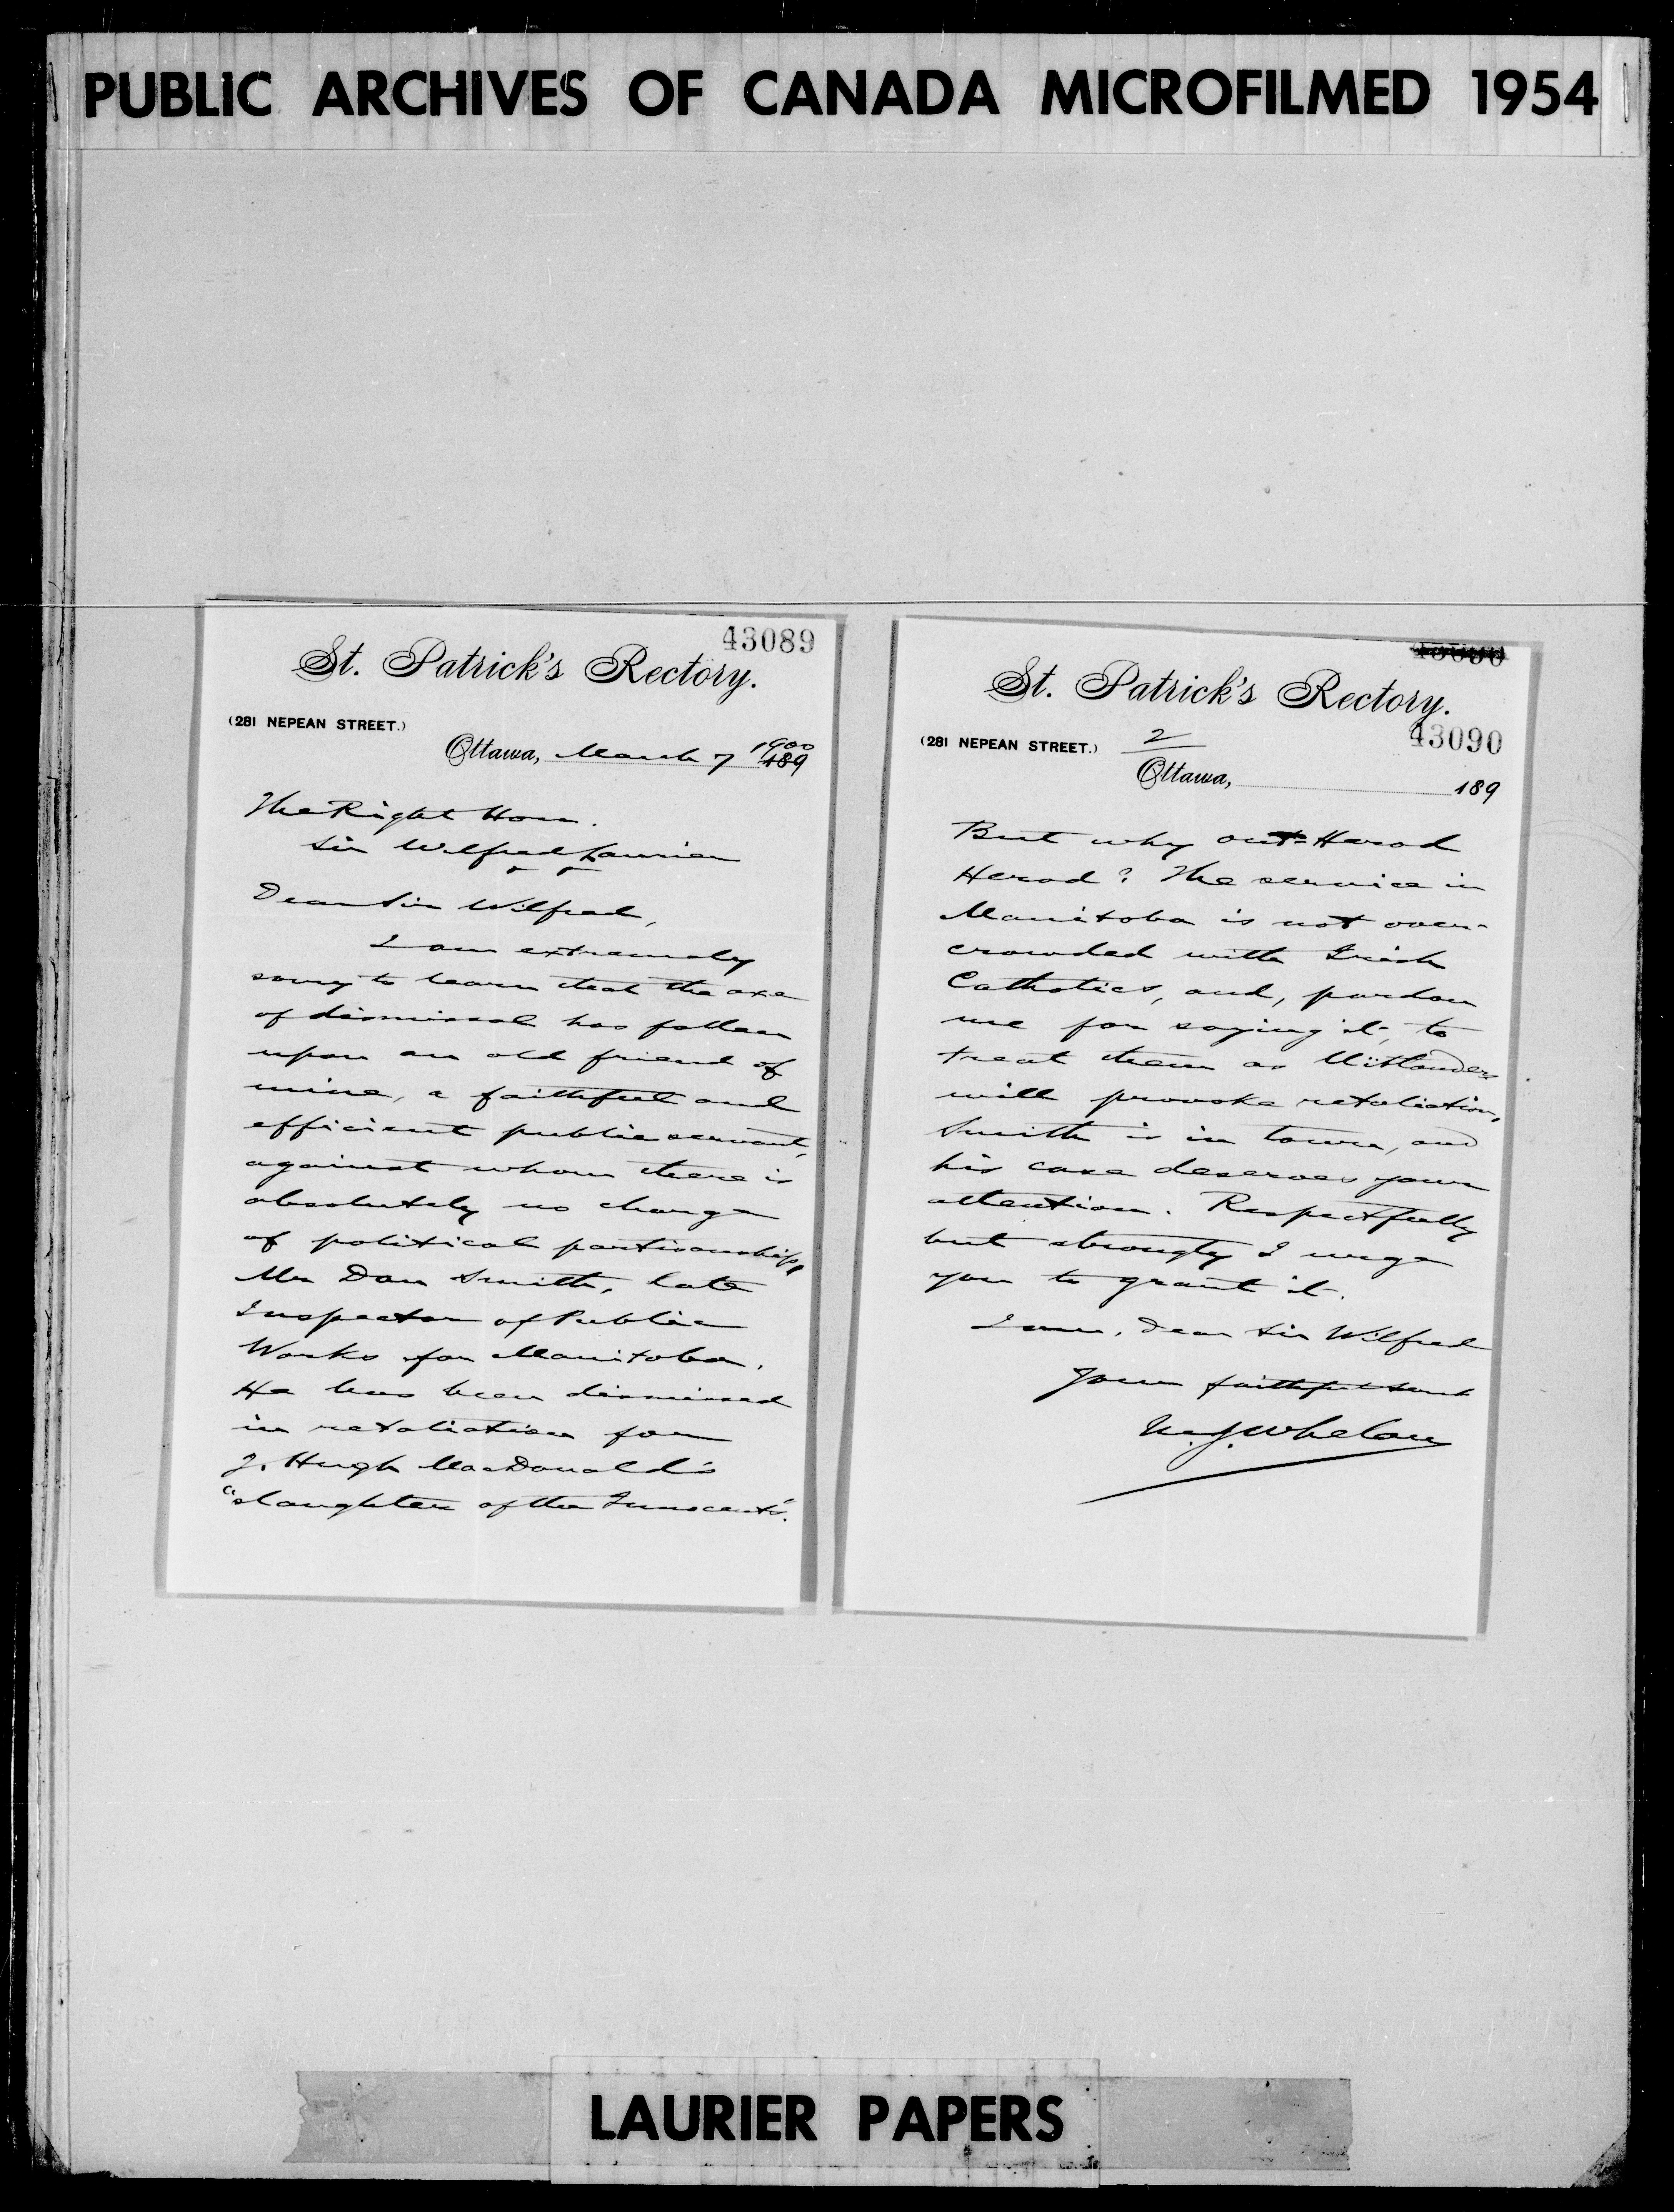 PUBLIC ARCHIVES OF CANADA MICROFILMED 1954
43089
St. Patrick's Rectory.
(281 NEPEAN STREET.)
Ottawa, March 7 1900 189
The Right Hon.
Sir Wilfred Laurier
Dear Sir Wilfred,
I am extremely
sorry to learn that the axe
of dismissal has fallen
upon an old friend of
mine, a faithful and
efficient public servant,
against whom there is
absolutely no charge
of political partisanship,
Mr Dan Smith, late
Inspector of Public
Works for Manitoba.
He has been dismissed
in retaliation for
J. Hugh MacDonald's
"slaughter of the Innocents".
43090
St. Patrick's Rectory.
43090
(281 NEPEAN STREET.)
2
Ottawa, 189
But why out-Herod
Herod? The service in
Manitoba is not over-
crowded with Irish
Catholics, and, pardon
me for saying it, to
treat them as Uitlanders
will provoke retaliation.
Smith is in town, and
his case deserves your
attention. Respectfully
but strongly I urge
you to grant it.
I am, dear Sir Wilfred
Your faithful servt
M.J. Whelan
LAURIER PAPERS